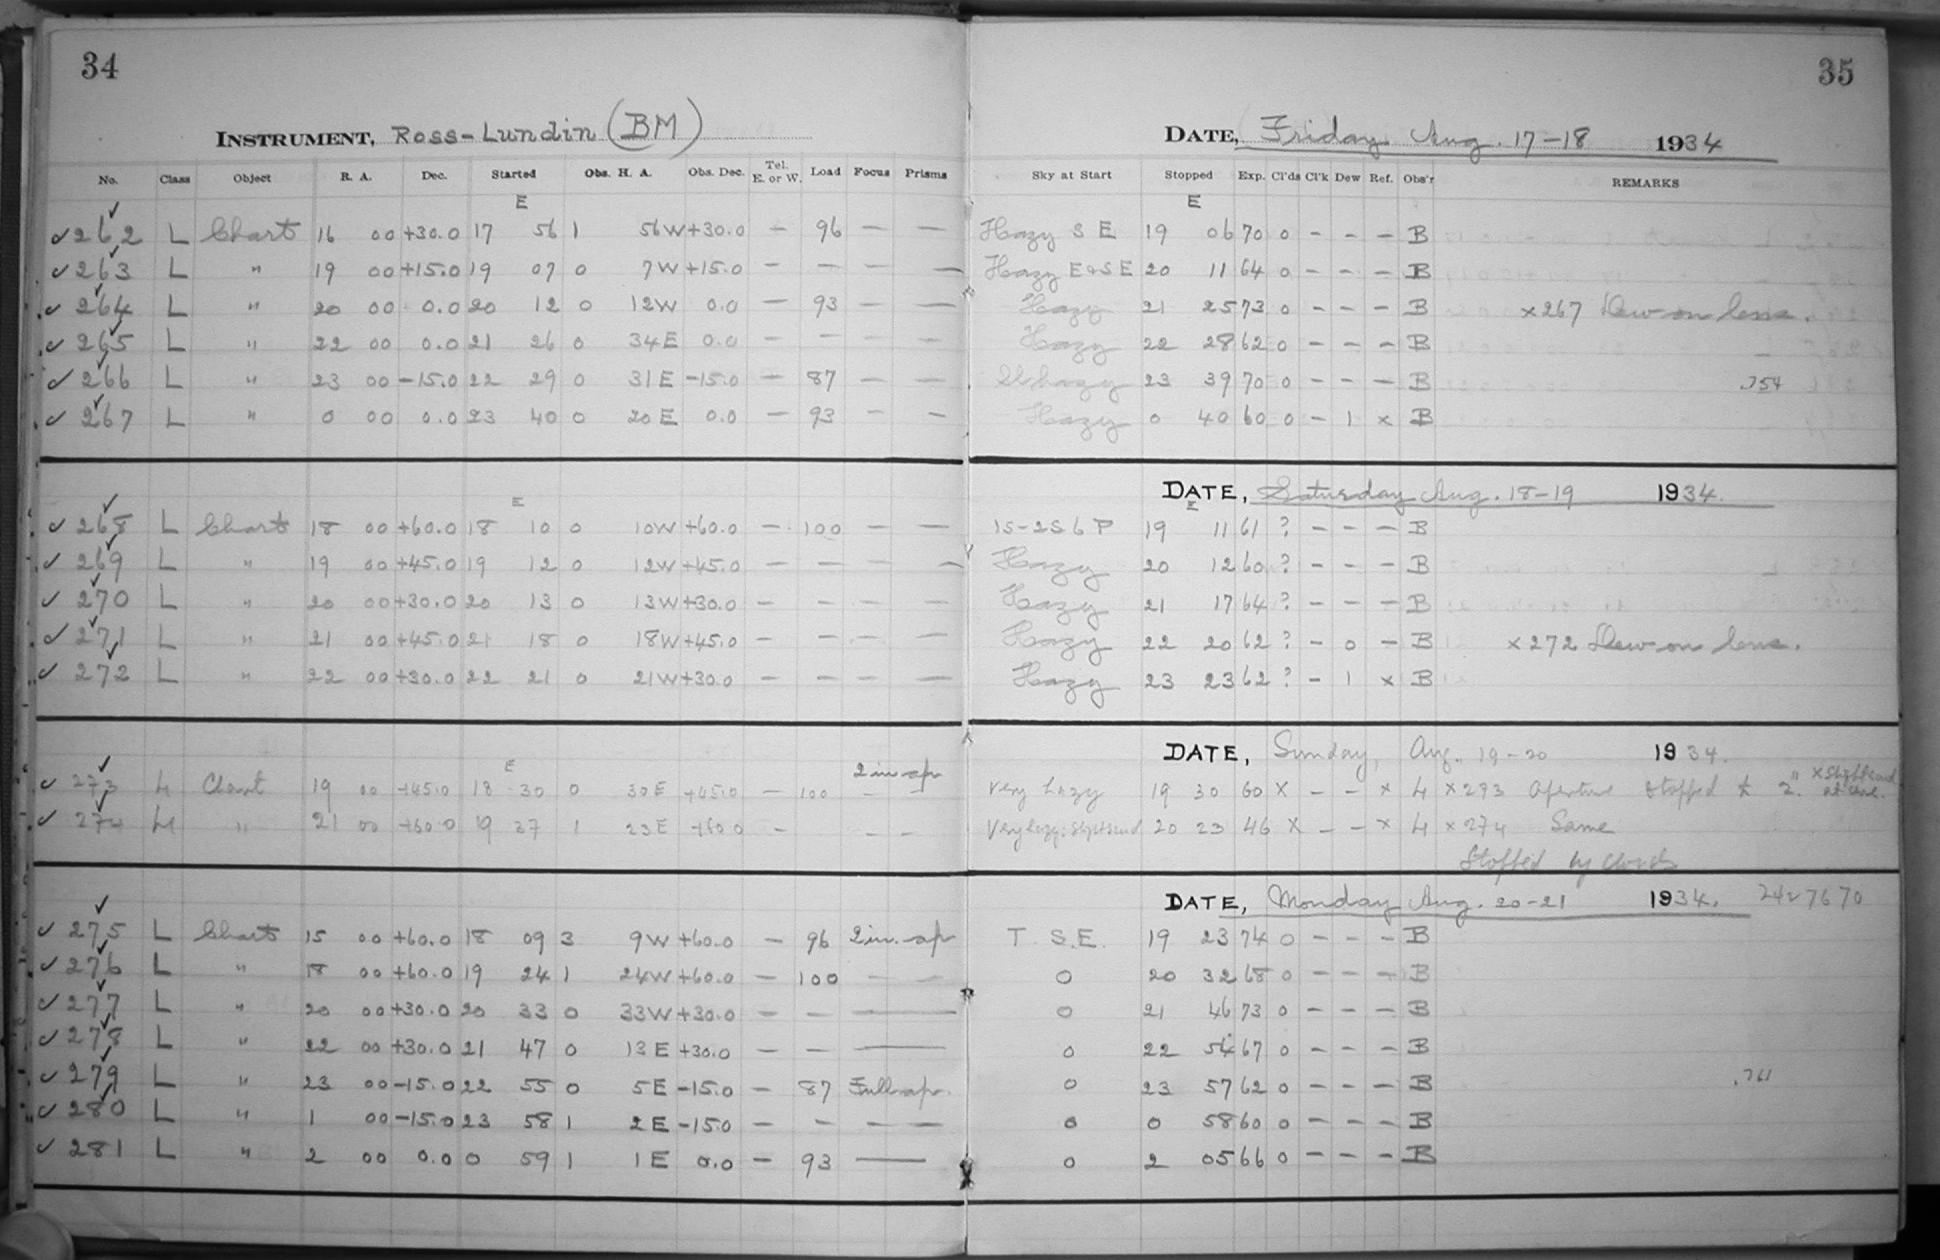 34
35
INSTRUMENT, Ross-Lundin (BM)
DATE, Friday Aug. 17-18 1934
No. Class Object R. A. Dec. Started Obs. H. A. Obs. Dec. Tel. E. or W. Load Focus Prisms Sky at Start Stopped Exp. Cl'ds Cl'k Dew Ref. Obs'r REMARKS
E E
✓262 L Chart 16 00 +30.0 17 56 1 56W +30.0 - 96 - - Hazy S E 19 06 70 0 - - - B
✓263 L " 19 00 +15.0 19 07 0 7W +15.0 - - - - Hazy E&SE 20 11 64 0 - - - B
✓264 L " 20 00 0.0 20 12 0 12W 0.0 - 93 - - Hazy 21 25 73 0 - - - B ×267 Dew on lens.
✓265 L " 22 00 0.0 21 26 0 34E 0.0 - - - - Hazy 22 28 62 0 - - - B
✓266 L " 23 00 -15.0 22 29 0 31E -15.0 - 87 - - Sl hazy 23 39 70 0 - - - B .754
✓267 L " 0 00 0.0 23 40 0 20E 0.0 - 93 - - Hazy 0 40 60 0 - 1 × B
DATE, Saturday Aug. 18-19 1934.
E E
✓268 L Chart 18 00 +60.0 18 10 0 10W +60.0 - 100 - - 1S-2S6P 19 11 61 ? - - - B
✓269 L " 19 00 +45.0 19 12 0 12W +45.0 - - - - Hazy 20 12 60 ? - - - B
✓270 L " 20 00 +30.0 20 13 0 13W +30.0 - - - - Hazy 21 17 64 ? - - - B
✓271 L " 21 00 +45.0 21 18 0 18W +45.0 - - - - Hazy 22 20 62 ? - 0 - B ×272 Dew on lens.
✓272 L " 22 00 +30.0 22 21 0 21W +30.0 - - - - Hazy 23 23 62 ? - 1 × B
DATE, Sunday, Aug. 19-20 1934.
E 2 in. ap
✓273 L Chart 19 00 +45.0 18 30 0 30E +45.0 - 100 - - Very hazy 19 30 60 × - - × L ×293 Aperture stopped to 2".
✓274 L " 21 00 +60.0 19 37 1 23E +60.0 - - - Very hazy: 20 23 46 × - - × L ×274 Same
Stopped by clouds
DATE, Monday Aug. 20-21 1934. 7427670
✓275 L Chart 15 00 +60.0 18 09 3 9W +60.0 - 96 2in. ap T. S.E. 19 23 74 0 - - - B
✓276 L " 18 00 +60.0 19 24 1 24W +60.0 - 100 - - 0 20 32 68 0 - - - B
✓277 L " 20 00 +30.0 20 33 0 33W +30.0 - - — 0 21 46 73 0 - - - B
✓278 L " 22 00 +30.0 21 47 0 13E +30.0 - - — 0 22 54 67 0 - - - B
✓279 L " 23 00 -15.0 22 55 0 5E -15.0 - 87 Full ap. 0 23 57 62 0 - - - B .761
✓280 L " 1 00 -15.0 23 58 1 2E -15.0 - - - - 0 0 58 60 0 - - - B
✓281 L " 2 00 0.0 0 59 1 1E 0.0 - 93 — 0 2 05 66 0 - - - B